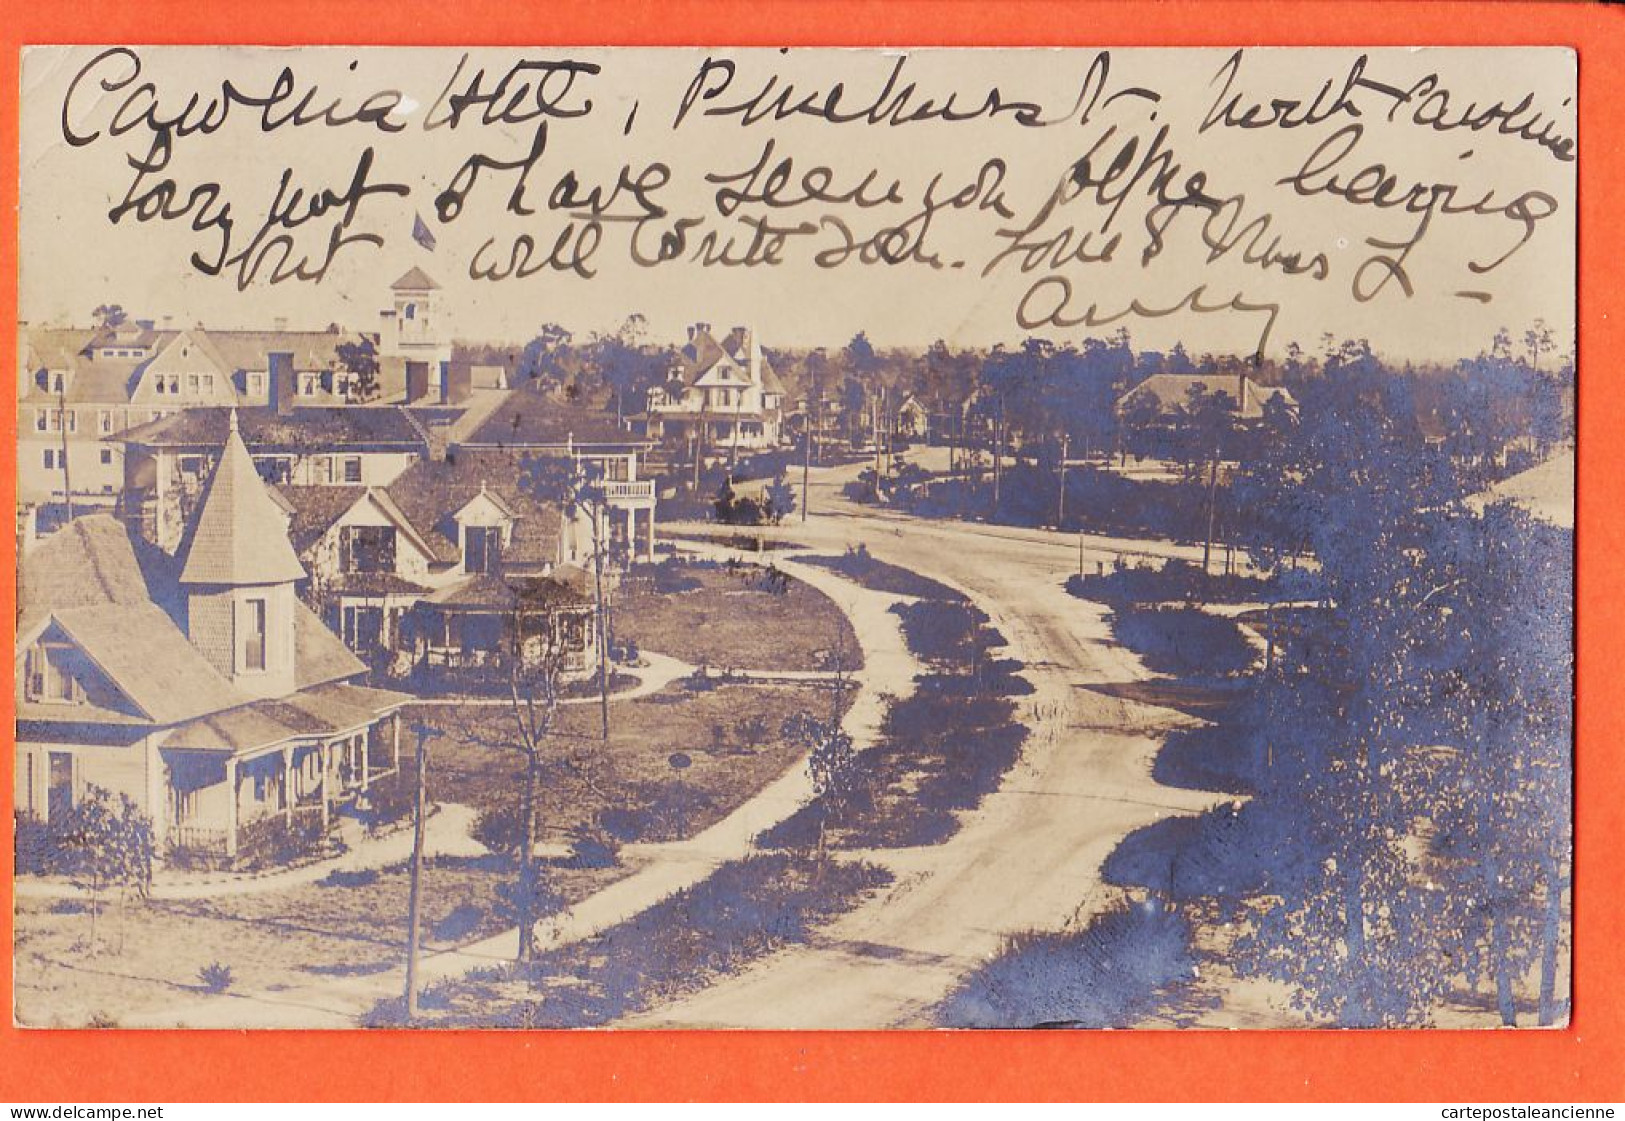 Carolina Hotel, Pinehurst. North Carolina
Sorry not to have seen you before leaving
but will write soon. Love to Miss L –
Amy
www.delcampe.net
cartepostaleancienne